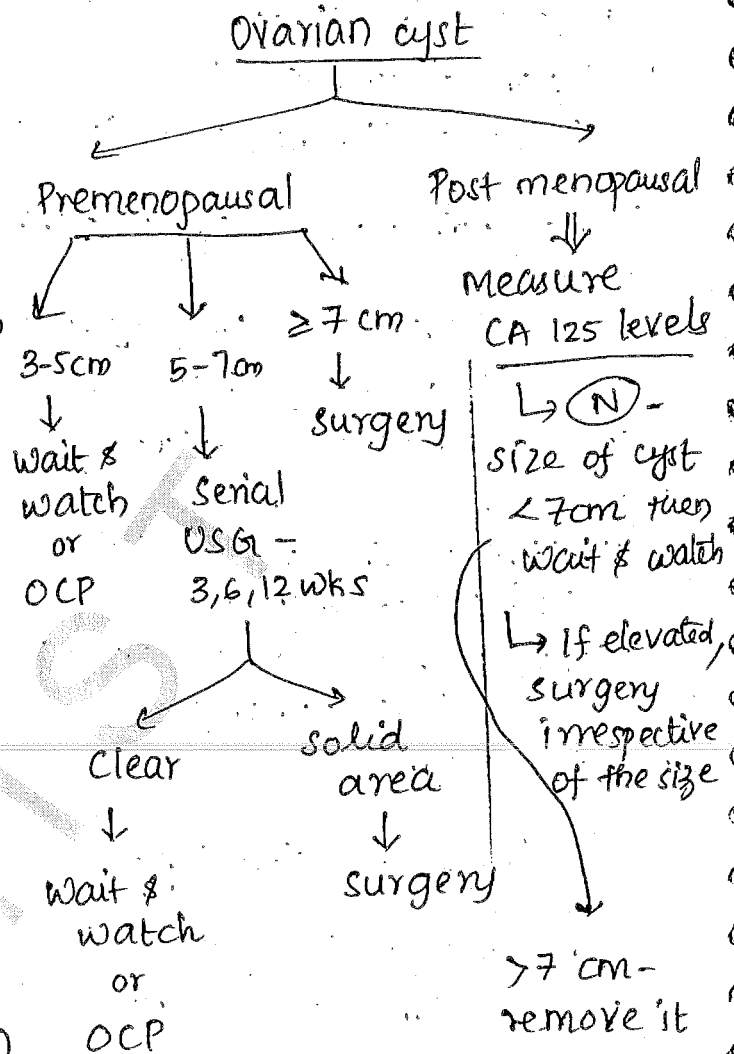 Ovarian cyst
Premenopausal
3-5cm
wait &
watch
or
OCP
5-7cm
Serial
USG -
3,6,12 wks
clear
wait &
watch
or
OCP
solid
area
surgery
≥7 cm
surgery
Post menopausal
measure
CA 125 levels
N -
size of cyst
<7cm then
wait & watch
If elevated,
surgery
irrespective
of the size
>7 cm -
remove it